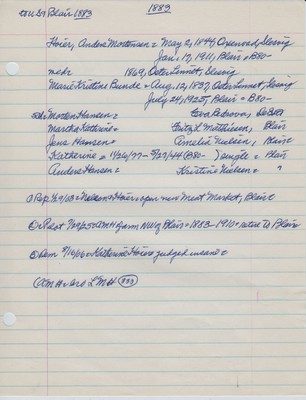 to U Sr Blair 1883
1883
Hoier, Anders Mortensen = May 2, 1844, Slesvig
Jan, 17, 1911, Blair = B80-
md= 1869, Oster Linnet, Slesvig
Marie Kristine Bunde = Aug, 12, 1837, Oster Linnet, Slesvig
July 24, 1925, Blair = B80-
Morten Hansen = Petersen,
Martha Kathrine = Fritz L. Matthiesen, Blair
Jens Hansen = Amelia Nielsen, Blair
Katherine = 1/26/77 - 5/27/44 (B80- Single = Blair
Anders Hansen = Kristine Nielsen =
Rep. 1/9/03 = Nelson & Hoier open new Meat Market, Blair
Pilot 7/29/65 = AMH farm NW of Blair = 1883-1910 = retire to Blair
Dem 8/16/06 = Katherine Hoier judged insane =
(AMH = bro L M H (833)